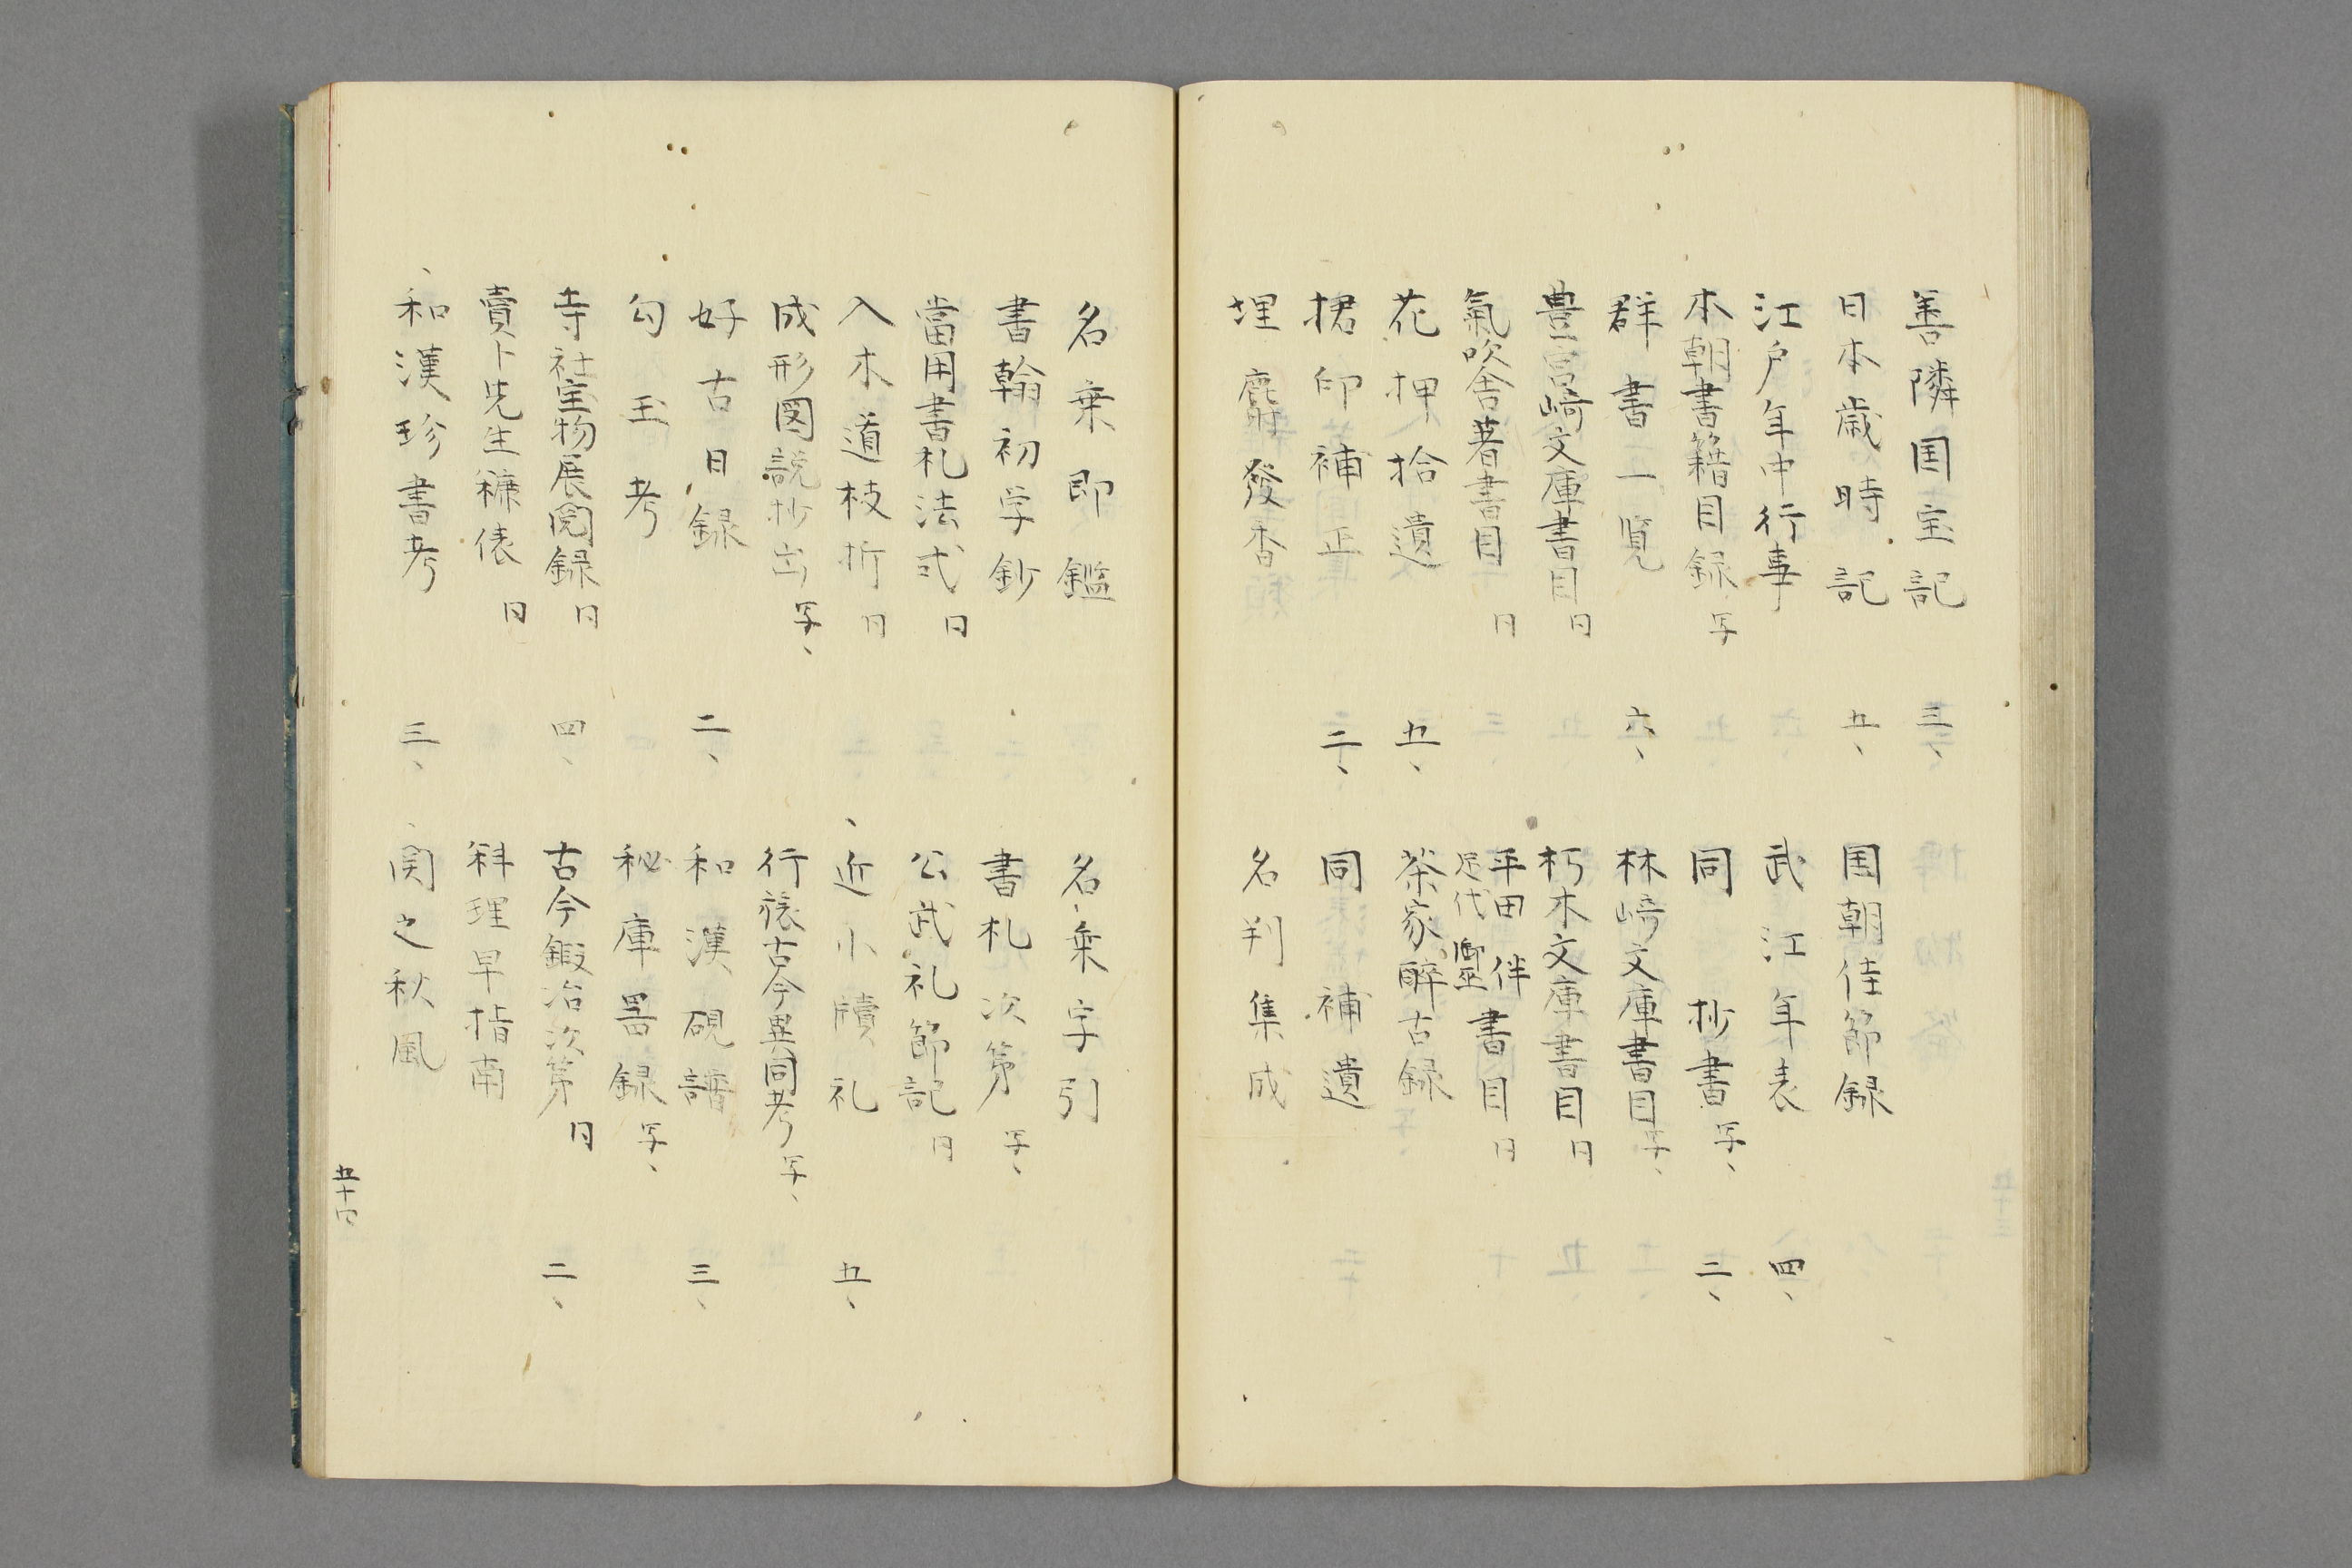 善隣国宝記 三、
日本歳時記 五、 国朝佳節録
江戸年中行事 武江年表 四、
本朝書籍目録 写 同 抄書 写、 二、
群書一覧 六、 林崎文庫書目 写、
豊宮崎文庫書目 同 朽木文庫書目 同
氣吹舎著書目 同 平田 伴 足代 書目 同
花押拾遺 五、 茶家酔古録
捃印補正 二、 同 補遺
埋麝發香 名判集成
名乗即鑑 名乗字引
書翰初学鈔 書札次第 写、
當用書札法式 同 公武礼節記 同
入木道枝折 同 、近小牘礼 五、
成形図説抄出 写、 行禄古今異同考 写、
好古日録 二、 和漢硯譜 三、
勾玉考 秘庫畧録 写、
寺社宝物展閲録 同 四、 古今鍛冶次第 同 二、
賣卜先生糠俵 同 料理早指南
、和漢珍書考 三、 、関之秋風
五十四